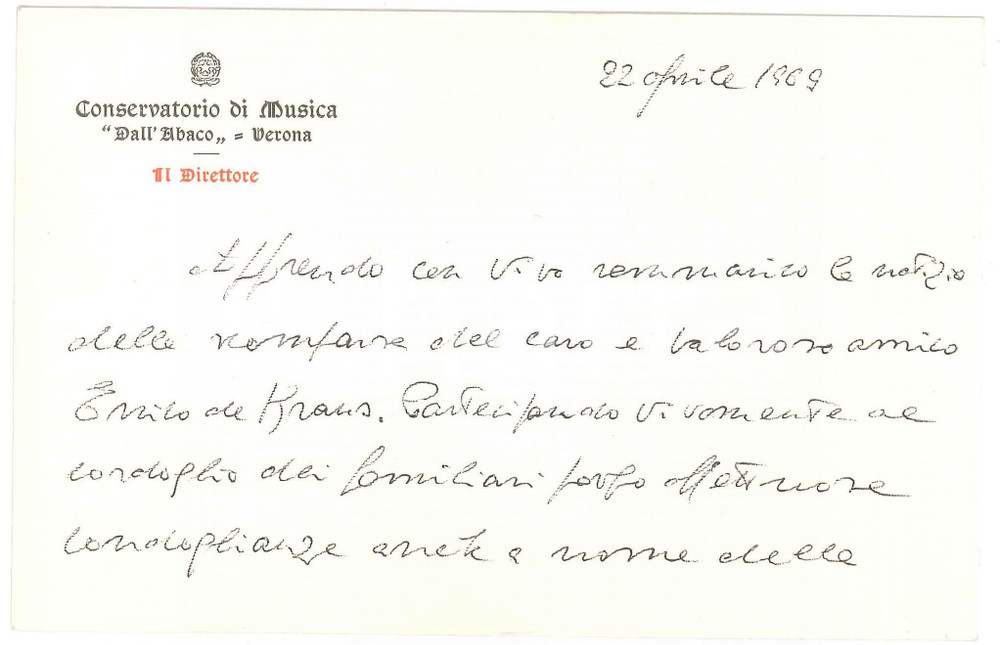 22 aprile 1969
Conservatorio di Musica
"Dall'Abaco„ = Verona
Il Direttore
Apprendo con vivo rammarico la notizia
della scomparsa del caro e valoroso amico
Enrico de Kraus. Partecipando vivamente al
cordoglio dei familiari porgo affettuose
condoglianze anche a nome della